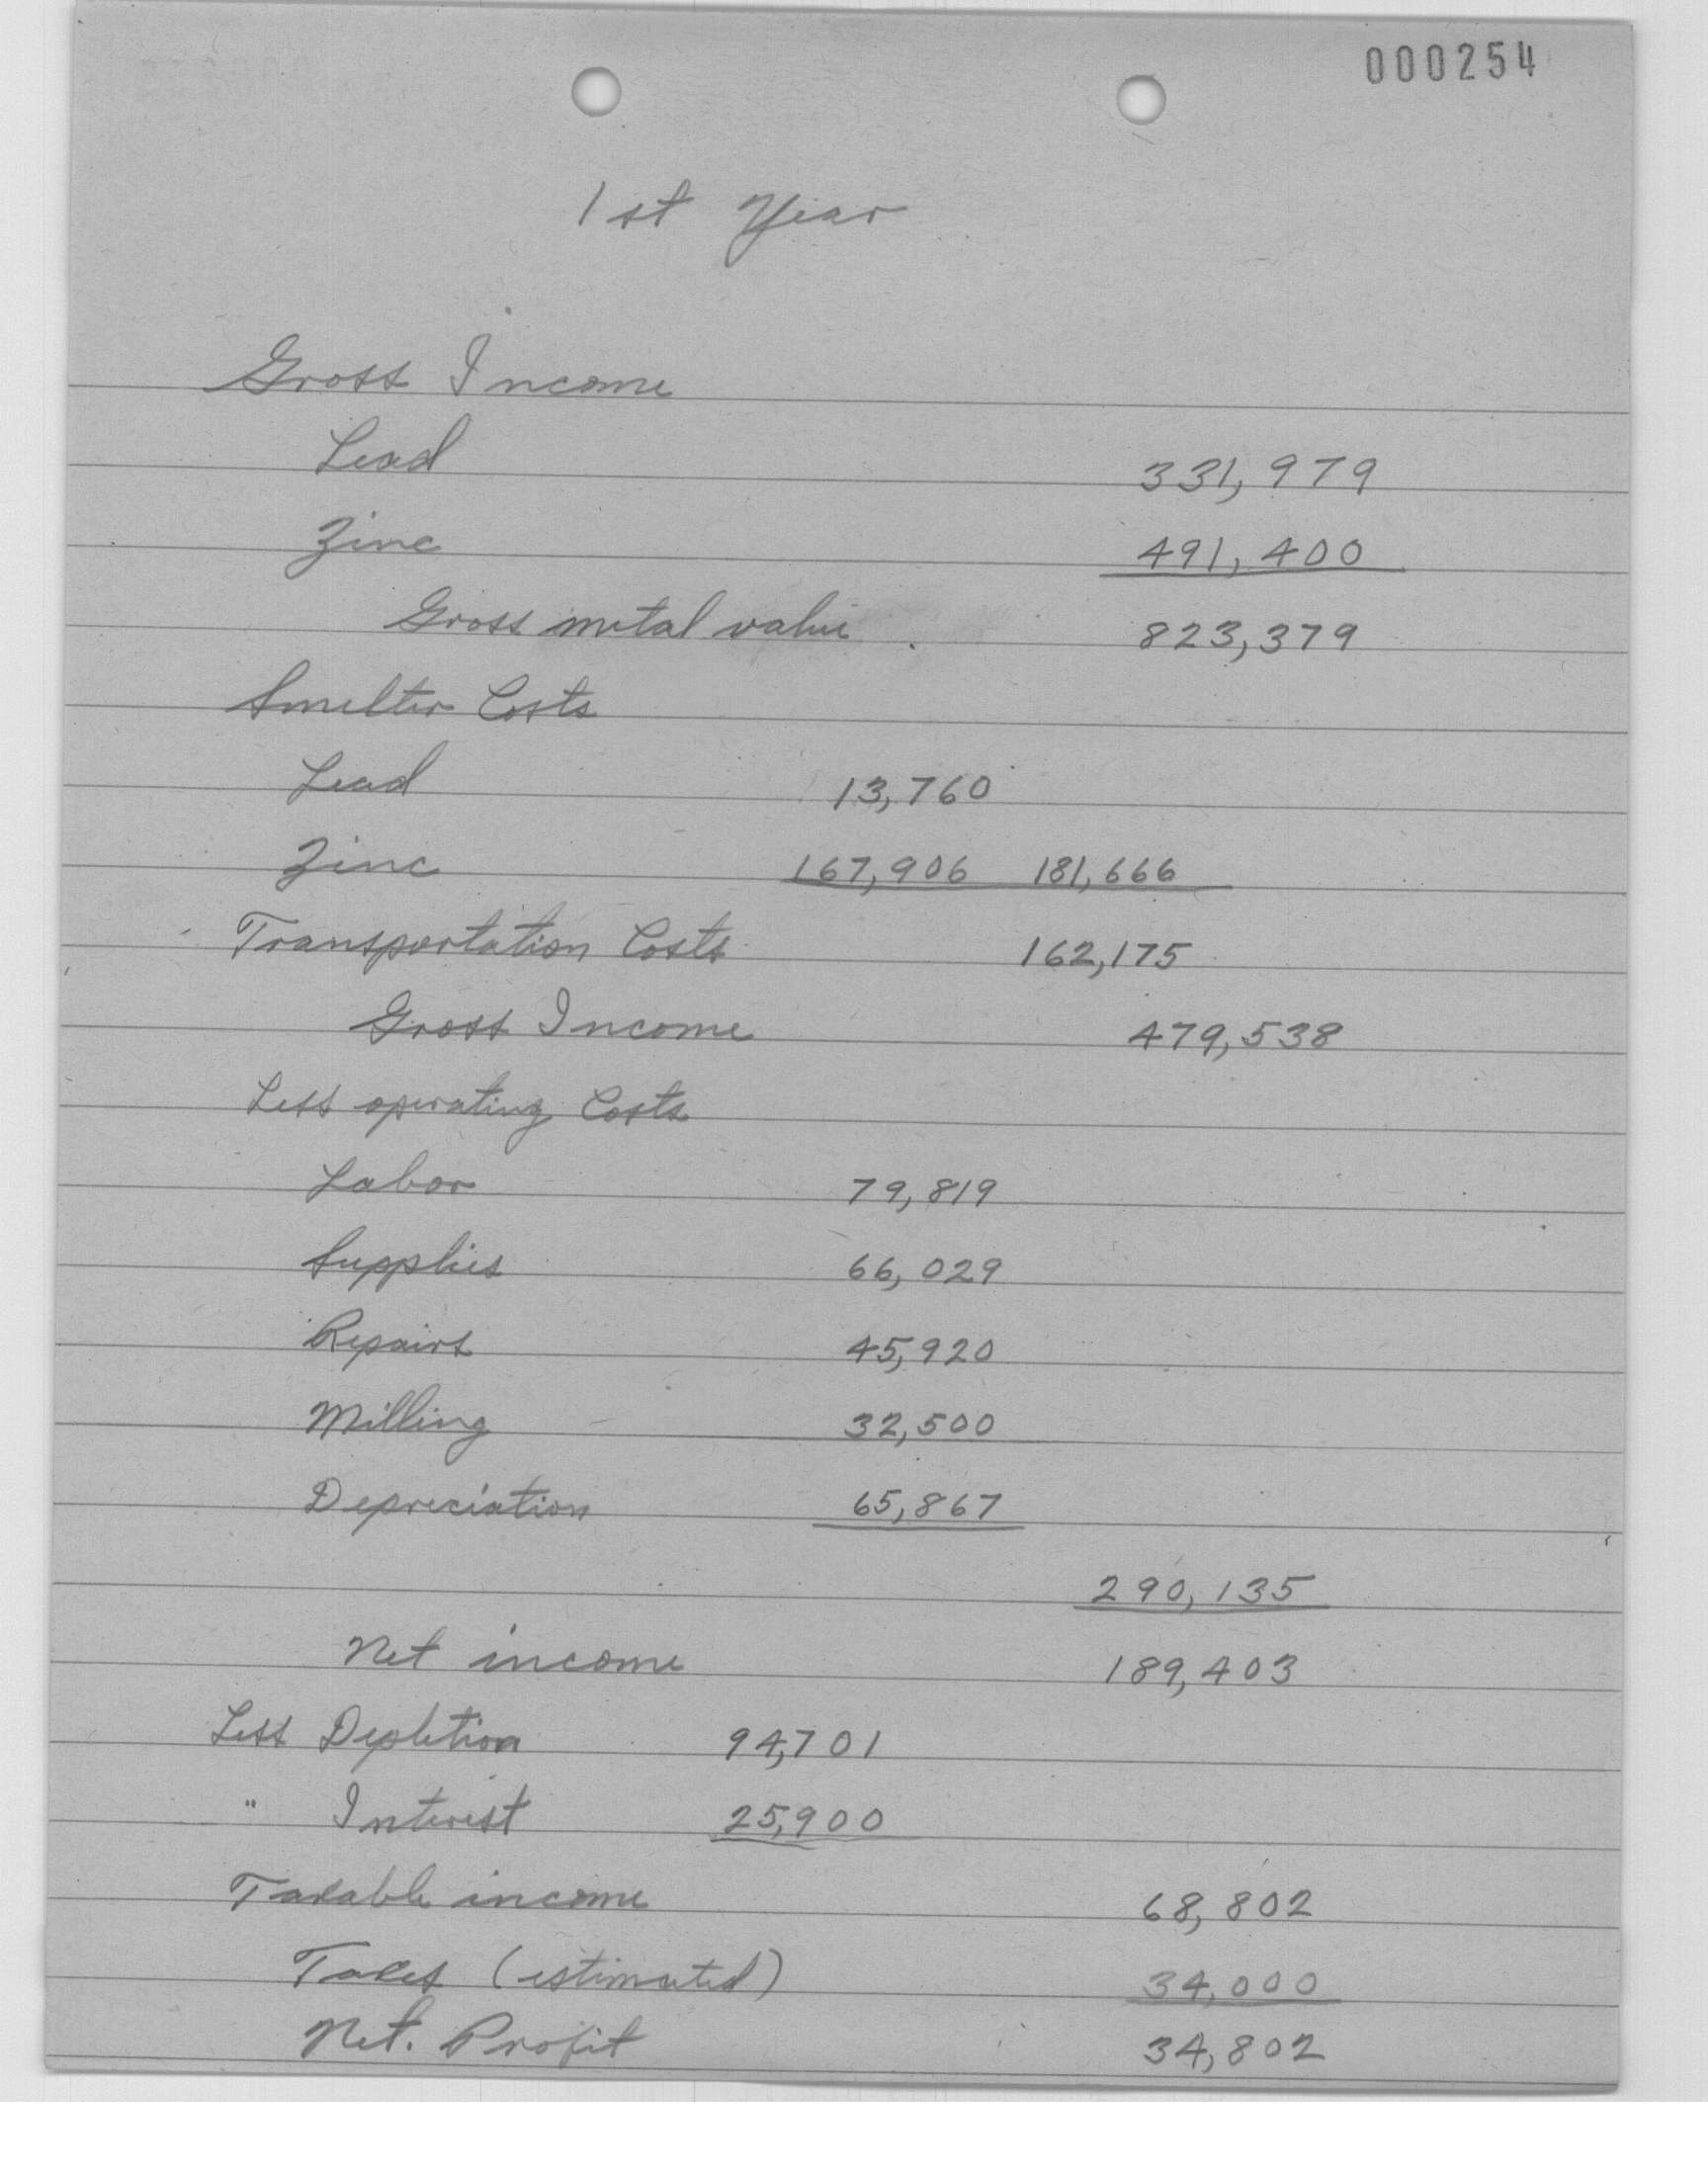 000254
1st Year
Gross Income
Lead 331,979
Zinc 491,400
Gross metal value 823,379
Smelter Costs
Lead 13,760
Zinc 167,906 181,666
Transportation Costs 162,175
Gross Income 479,538
Less operating Costs
Labor 79,819
Supplies 66,029
Repairs 45,920
Milling 32,500
Depreciation 65,867
290,135
Net income 189,403
Less Depletion 94,701
" Interest 25,900
Taxable income 68,802
Taxes (estimated) 34,000
Net. Profit 34,802